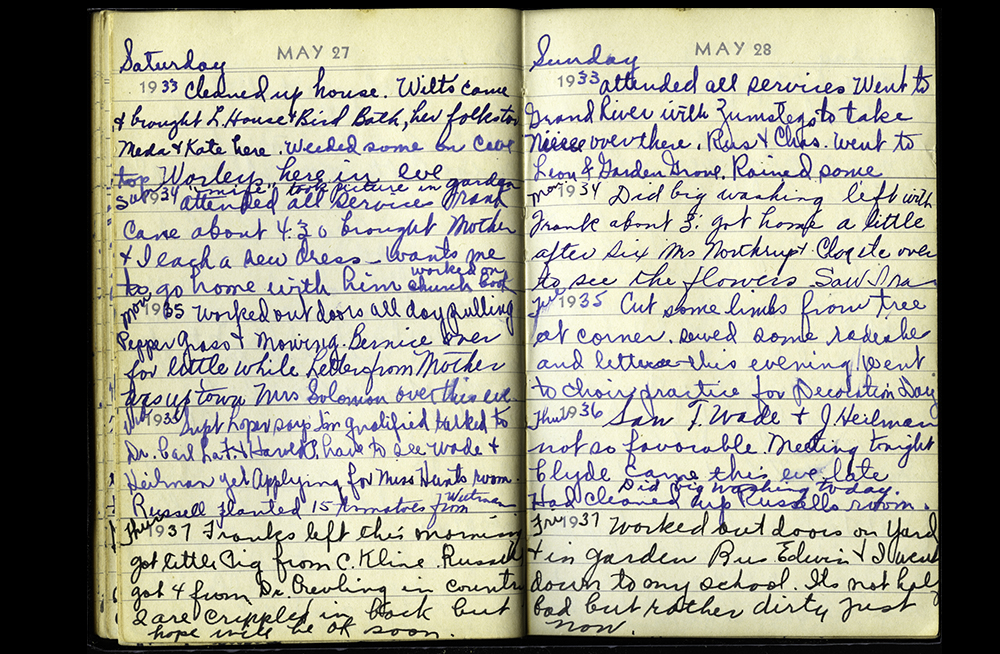 Saturday
MAY 27
1933 Cleaned up house. Wilts came
& brought L. House & Bird Bath, her folks too
Meda & Kate here. Weeded some on Cave
top Worleys here in eve
"mife" took picture in garden
Sun 1934 attended all services Frank
came about 4:30 brought Mother
& I each a new dress - wants me
to go home with him worked on church book
Mon 1935 Worked out doors all day pulling
Pepper Grass & Mowing. Bernice over
for little while Letter from Mother
was up town Mrs Solomon over this eve
Wed 1936 Supt hoper says I'm qualified talked to
Dr. Carl Lat. & Harold P. have to see Wade &
Heilman yet Applying for Miss Hunts room.
Russell planted 15 tomatoes from
Thurs 1937 Franks left this morning
got little Pig from C. Kline. Russell
got 4 from Dr. Crevling in country
2 are crippled in back but
hope will be OK soon.
Sunday
MAY 28
1933 attended all services Went to
Grand River with Zumategs to take
Niece over there. Rus & Chas. went to
Leon & Garden Grove. Rained some
Mon 1934 Did big washing left with
Frank about 3: got home a little
after six Mrs Northrup & Cloyite over
to see the flowers Saw Ira
Tue 1935 Cut some limbs from tree
at corner. sowed some radeshe
and lettuce this evening went
to choir practice for Decoration Day
Thu 1936 Saw F. Wade & J. Heilman
not so favorable. Meeting tonight
Clyde came this eve late
Did big washing today.
Had cleaned up Russells room.
Fri 1937 Worked out doors on Yard
& in garden Rus Edwin & I went
down to my school. Its not half
bad but rather dirty just
now.